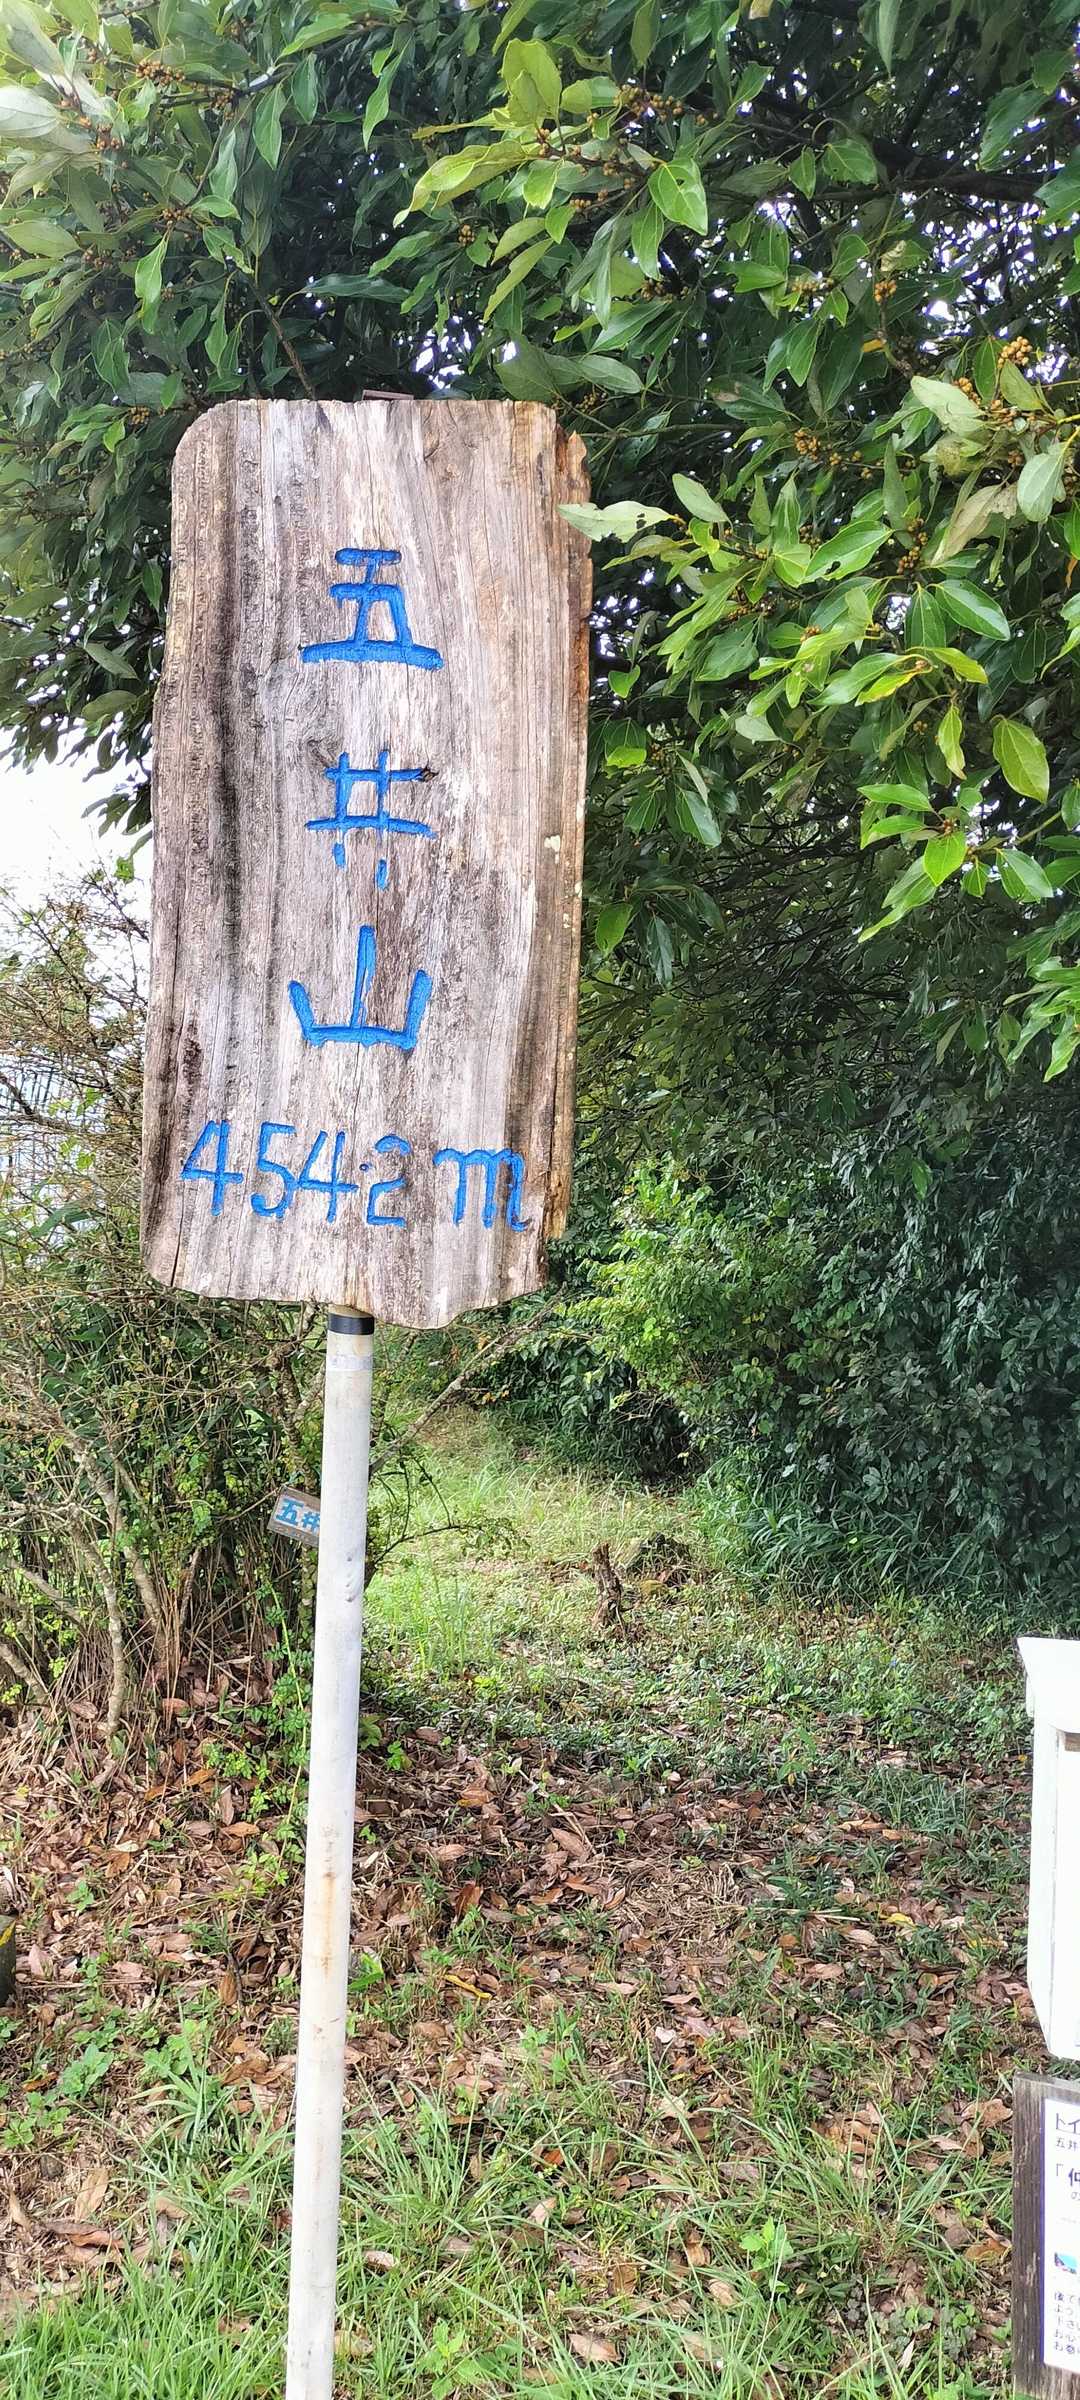 五井山
454.2m
五井
トイ
五井
「仲